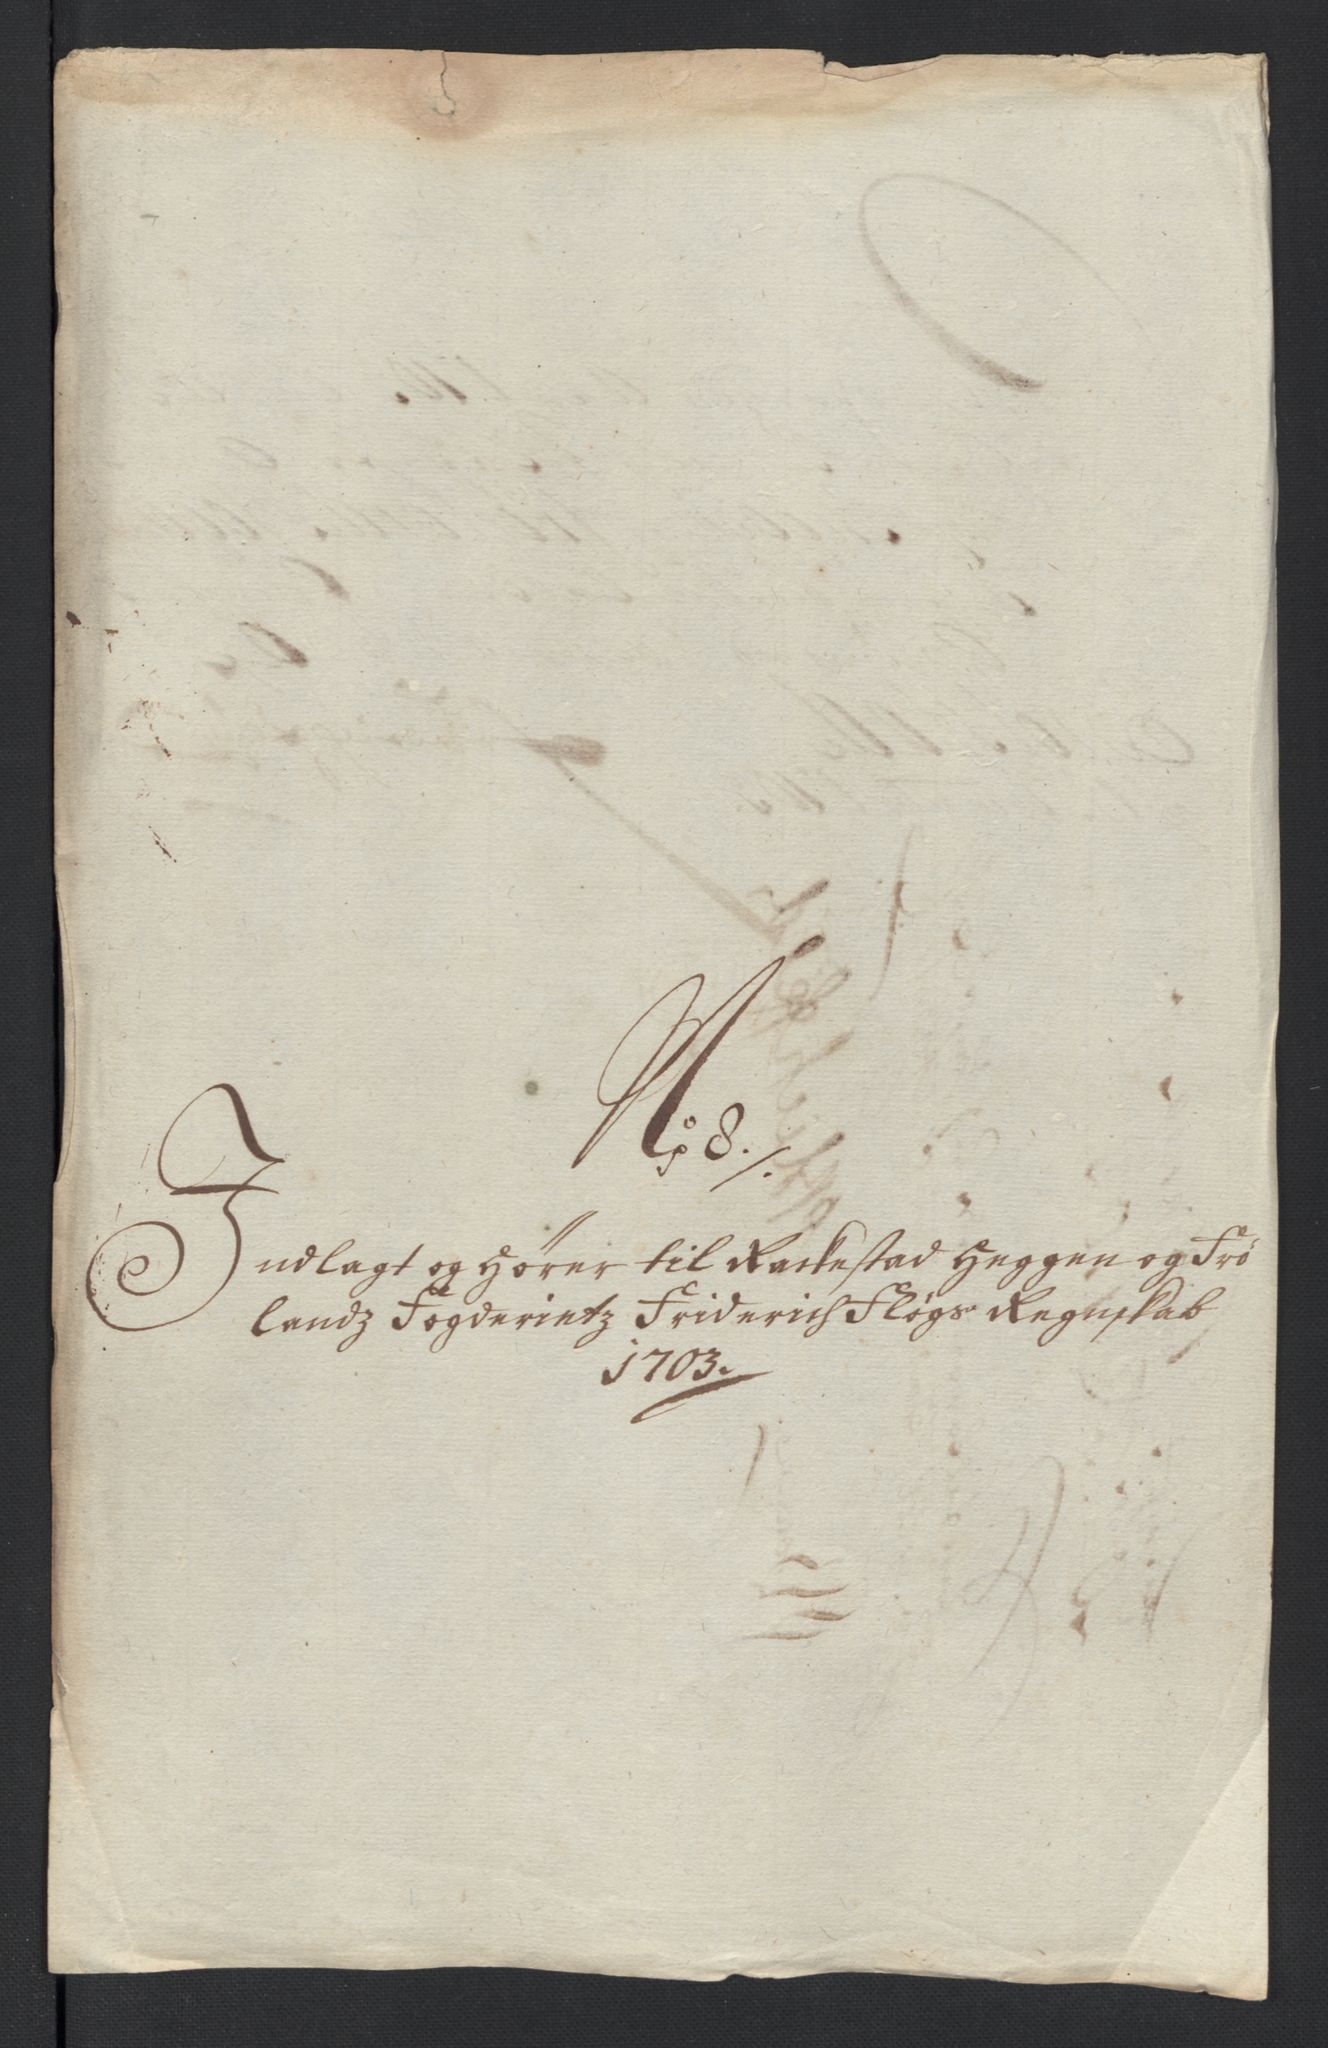 No 8.
Indlagt og Hører til Rackestad Heggen og Frø
landz Fogderietz Friderich Fløgs Regnskab
1703.